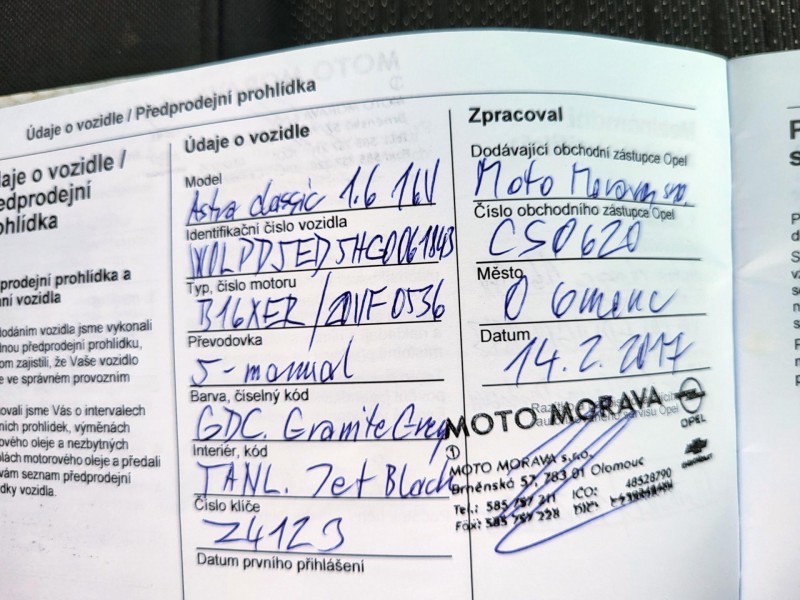 Údaje o vozidle / Předprodejní prohlídka
daje o vozidle /
edprodejní
ohlídka
prodejní prohlídka a
ní vozidla
dodáním vozidla jsme vykonali
lnou předprodejní prohlídku,
om zajistili, že Vaše vozidlo
e ve správném provozním
ovali jsme Vás o intervalech
ních prohlídek, výměnách
rového oleje a nezbytných
lách motorového oleje a předali
vám seznam předprodejní
dky vozidla.
Údaje o vozidle
Model
Astra classic 1.6 16V
Identifikační číslo vozidla
W0LPD5ED5HG061843
Typ, číslo motoru
B16XER / 20VF0536
Převodovka
5-manual
Barva, číselný kód
GDC. Granite Grey
Interiér, kód
TANL. Jet Black
Číslo klíče
Z4123
Datum prvního přihlášení
Zpracoval
Dodávající obchodní zástupce Opel
Moto Morava sro.
Číslo obchodního zástupce Opel
CS0620
Město
Olomouc
Datum
14.2.2017
MOTO MORAVA
OPEL
①
MOTO MORAVA s.r.o.
Brněnská 57, 783 01 Olomouc
Tel.: 585 757 211 IČO: 48528790
Fax: 585 757 228 DIČ: